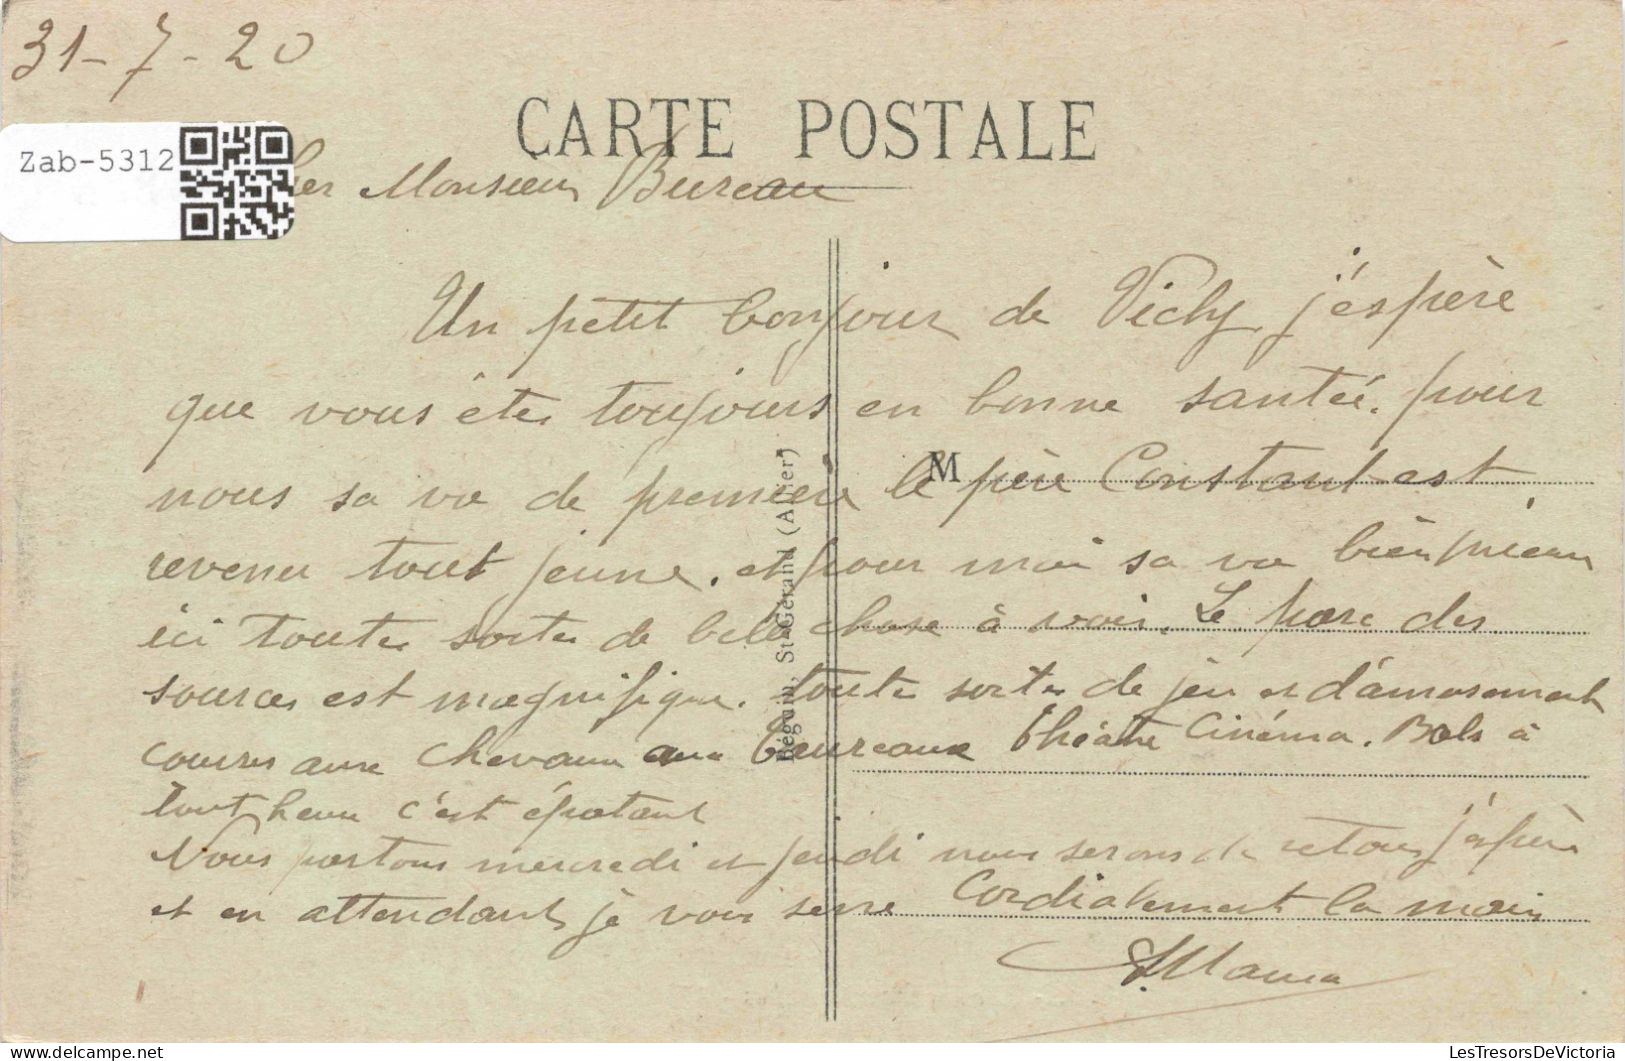 31-7-20
CARTE POSTALE
Zab-5312
Cher Monsieur Bureau
Un petit bonjour de Vichy j'espère
que vous ête toujours en bonne santée. pour
nous sa va de première le père Constant est
M
revenu tout jeune. et pour moi sa va bien
ici toute sorte de belle chose à voir. Le parc des
sources est magnifique. toute sorte de jeu et d'amusement
courses aux chevaux aux Taureaux théatre Cinéma. Bals à
tout heure c'est épatant
Nous partons mercredi et jeudi nous serons de retour j'espère
et en attendant je vous serre Cordialement la main
Béguin, St-Gérand (Allier)
LesTresorsDeVictoria sur Delcampe.net